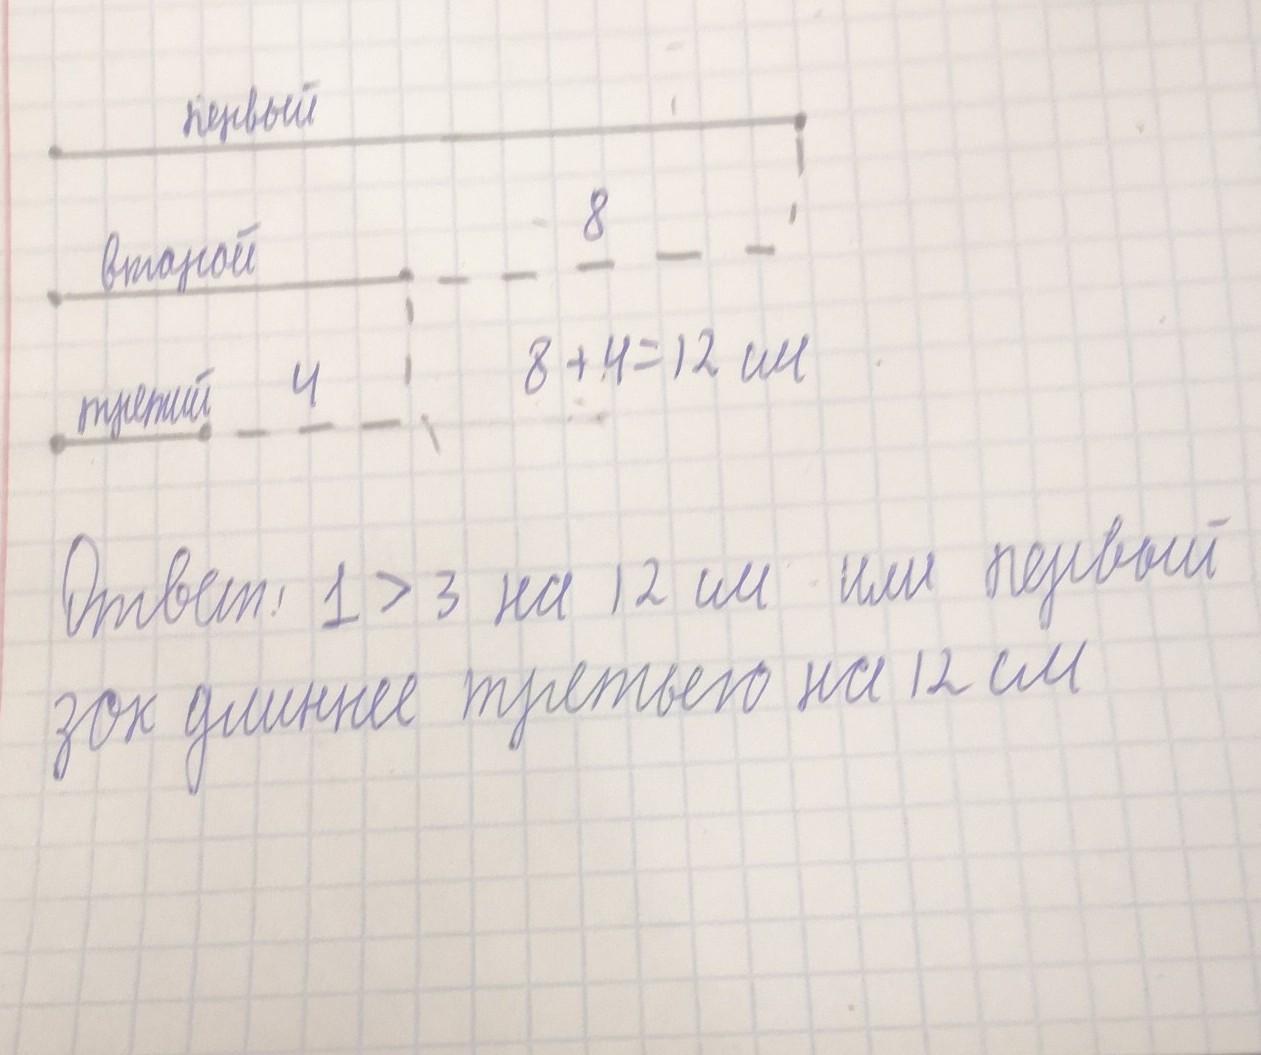 первый
второй
8
третий 4
8+4=12 см
Ответ: 1 > 3 на 12 см или первый
зок длиннее третьего на 12 см